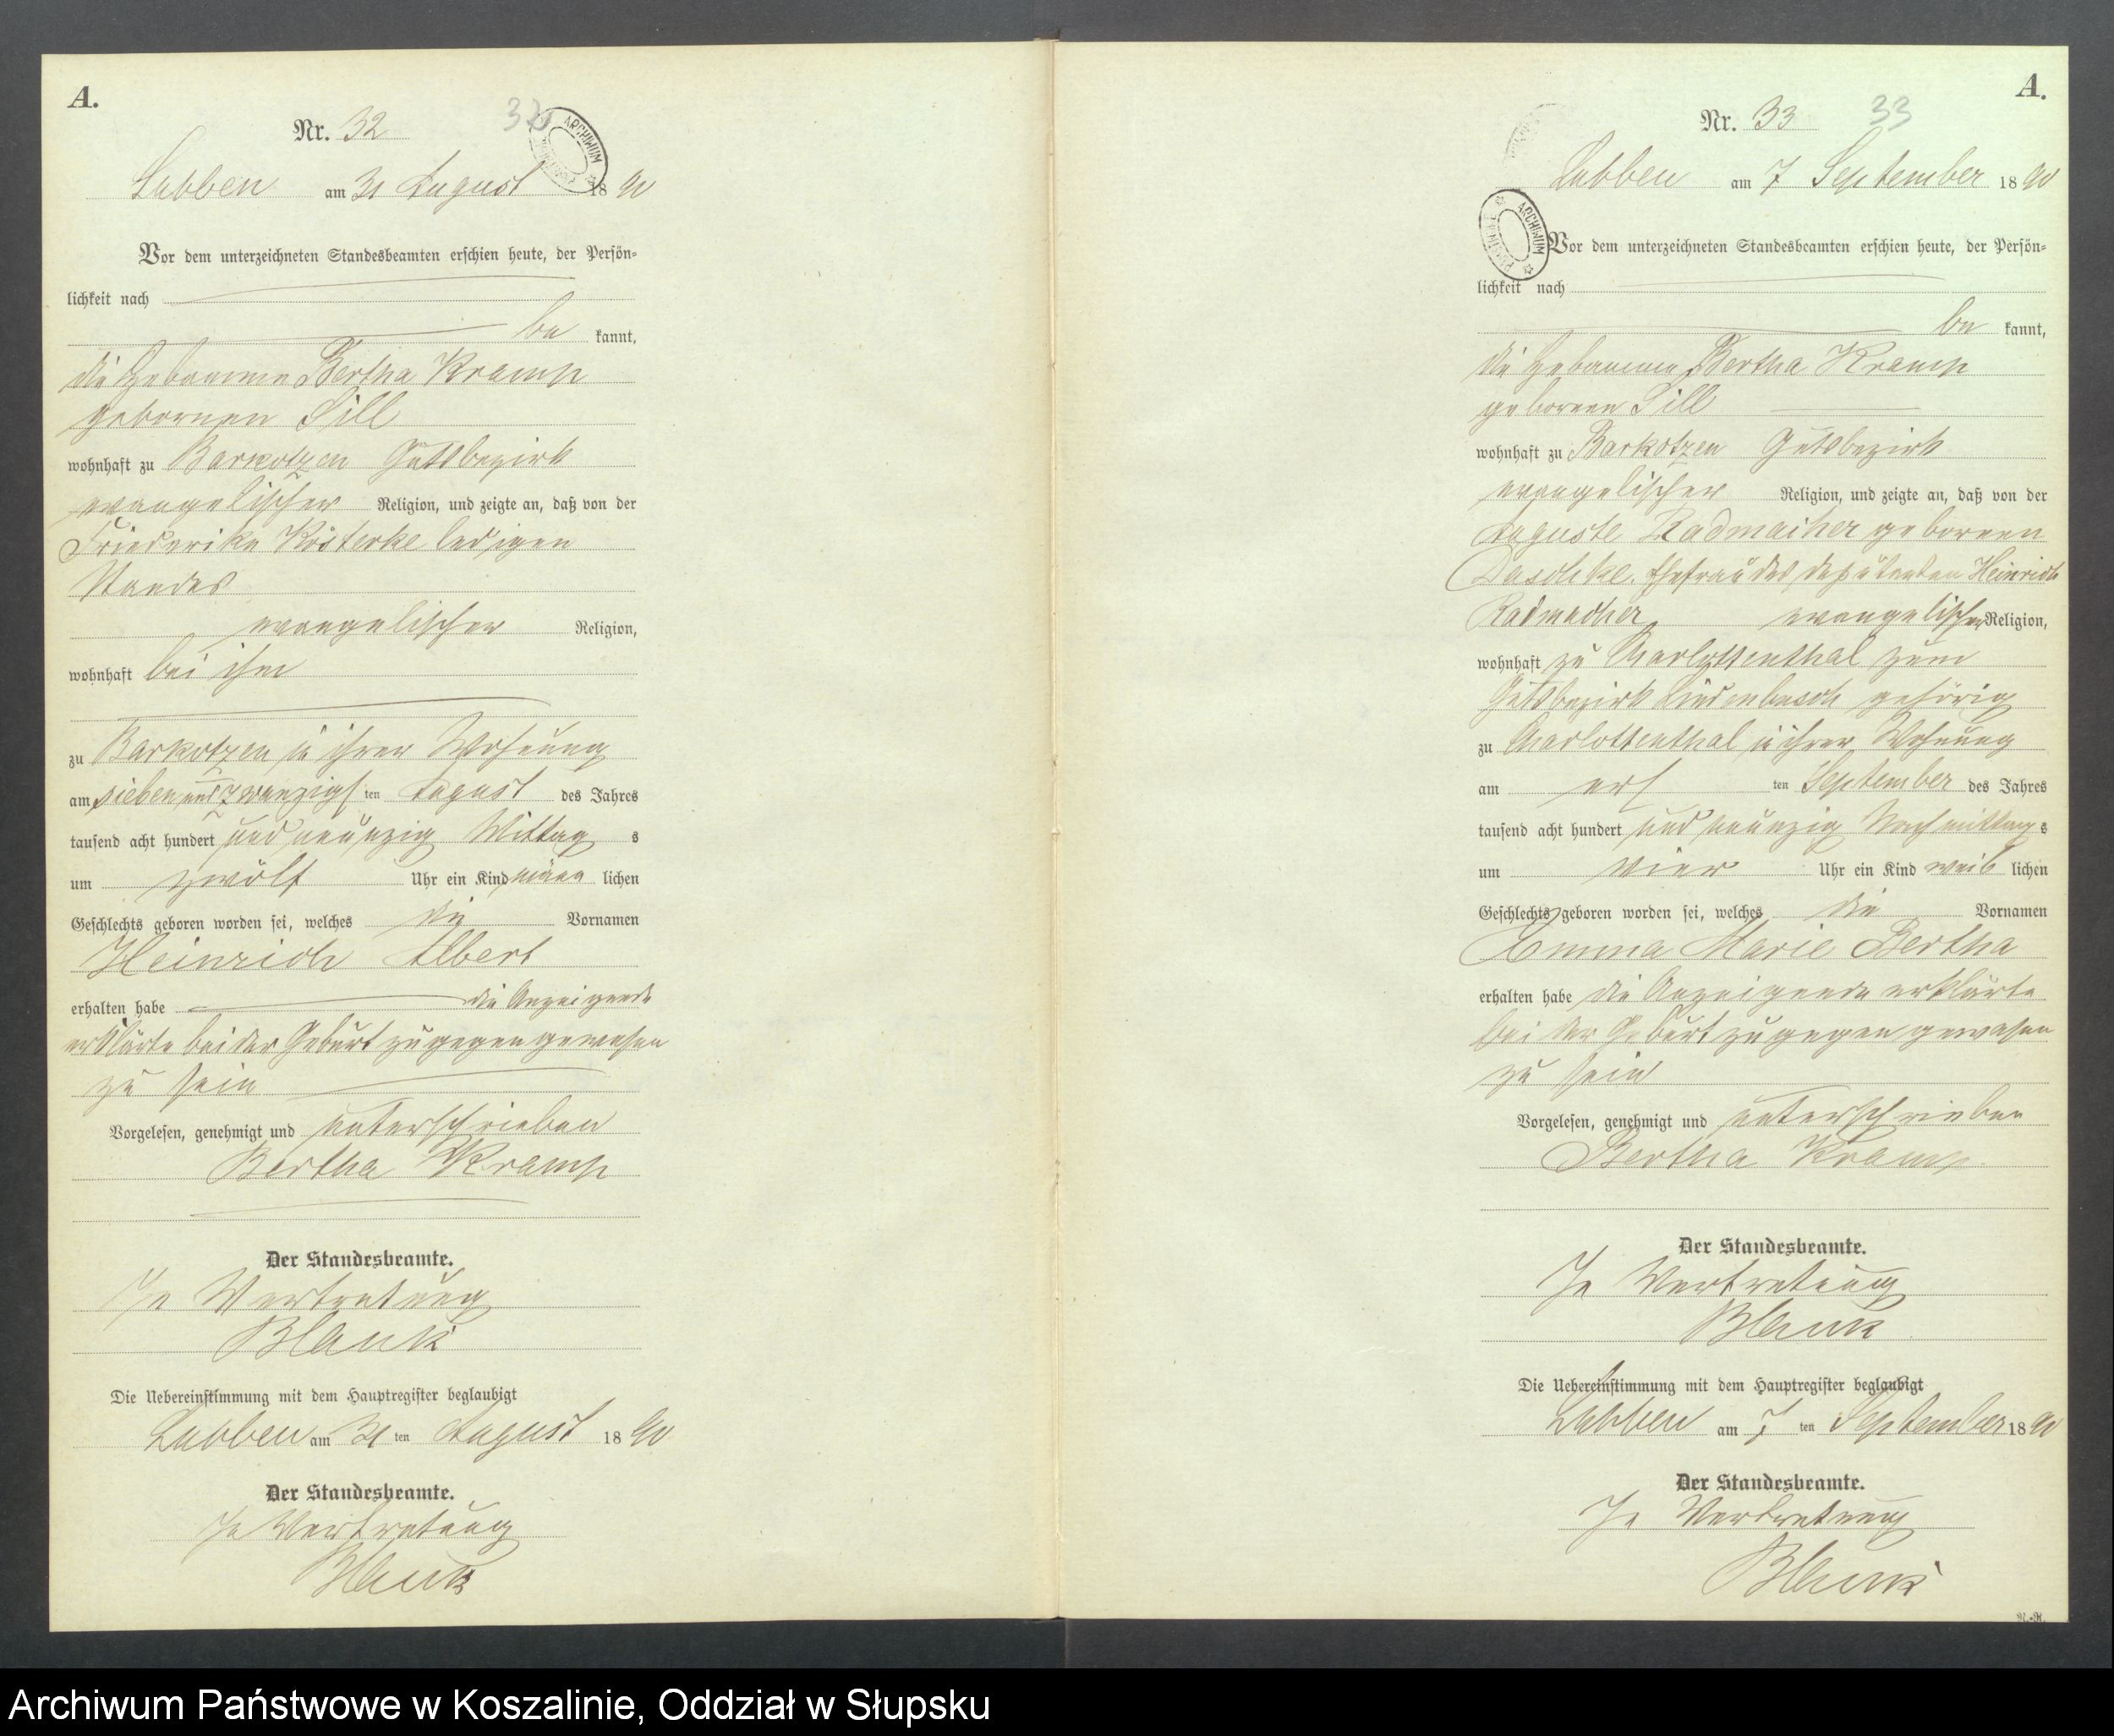 A.
Nr. 32
32
ARCHIWUM
Labben am 31 August 1890
Vor dem unterzeichneten Standesbeamten erschien heute, der Persön-
lichkeit nach
be kannt,
die Hebamme Bertha Kramp
geborenen Sill
wohnhaft zu Barkotzen Gutsbezirk
evangelischer Religion, und zeigte an, daß von der
Friederike Kösterke ledigen
Standes
evangelischer Religion,
wohnhaft bei ihr
zu Barkotzen in ihrer Wohnung
am siebenundzwanzigsten August des Jahres
tausend acht hundert und neunzig Mittags
um zwölf Uhr ein Kind männlichen
Geschlechts geboren worden sei, welches die Vornamen
Heinrich Albert
erhalten habe die Anzeigende
erklärte bei der Geburt zugegen gewesen
zu sein
Vorgelesen, genehmigt und unterschrieben
Bertha Kramp
Der Standesbeamte.
In Vertretung
Blank
Die Uebereinstimmung mit dem Hauptregister beglaubigt
Labben am 31 ten August 1890
Der Standesbeamte.
In Vertretung
Blank
A.
Nr. 33
33
ARCHIWUM
Labben am 7 September 1890
Vor dem unterzeichneten Standesbeamten erschien heute, der Persön-
lichkeit nach
be kannt,
die Hebamme Bertha Kramp
geboren Sill
wohnhaft zu Barkotzen Gutsbezirk
evangelischer Religion, und zeigte an, daß von der
Auguste Radmacher geboren
Daschke. Ehefrau des Deputanten Heinrich
Radmacher evangelischer Religion,
wohnhaft zu Charlottenthal zum
Gutsbezirk Lindenbusch gehörig
zu Charlottenthal in ihrer Wohnung
am ersten September des Jahres
tausend acht hundert und neunzig Nachmittags
um vier Uhr ein Kind weiblichen
Geschlechts geboren worden sei, welches die Vornamen
Emma Marie Bertha
erhalten habe die Anzeigende erklärte
bei der Geburt zugegen gewesen
zu sein
Vorgelesen, genehmigt und unterschrieben
Bertha Kramp.
Der Standesbeamte.
In Vertretung
Blank
Die Uebereinstimmung mit dem Hauptregister beglaubigt
Labben am 7 ten September 1890
Der Standesbeamte.
In Vertretung
Blank
Archiwum Państwowe w Koszalinie, Oddział w Słupsku